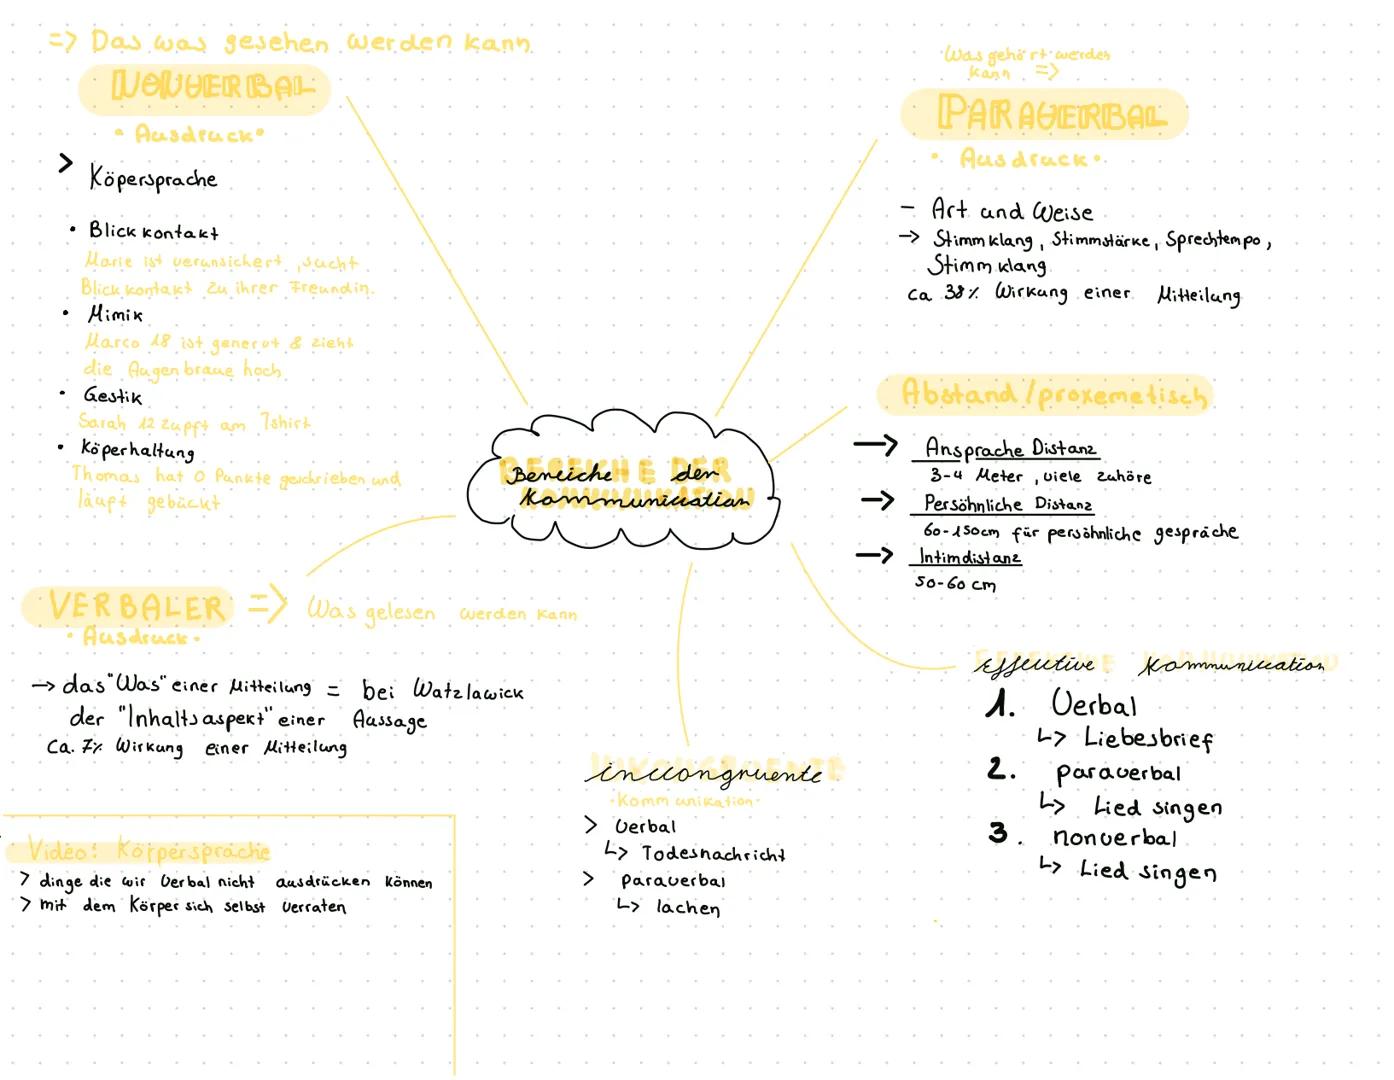 => Das was gesehen werden kann
NONVERBAL
• Ausdruck •
> Köpersprache
• Blickkontakt
Marie ist verunsichert, sucht
Blickkontakt zu ihrer Freundin.
• Mimik
Marco 18 ist genervt & zieht
die Augenbraue hoch
• Gestik
Sarah 12 zupft am Tshirt
• Köperhaltung
Thomas hat 0 Punkte geschrieben und
läuft gebückt
Was gehört werden
kann =>
PARAVERBAL
• Ausdruck •
- Art und Weise
-> Stimmklang, Stimmstärke, Sprechtempo,
Stimmklang
ca 38% Wirkung einer Mitteilung
Abstand/proxemetisch
-> Ansprache Distanz
3-4 Meter, viele zuhöre
-> Persöhnliche Distanz
60-150cm für persöhnliche gespräche
-> Intimdistanz
50-60 cm
BEREICHE DER
KOMMUNIKATION
Bereiche der
Kommunikation
VERBALER => Was gelesen werden kann
• Ausdruck •
-> das "Was" einer Mitteilung = bei Watzlawick
der "Inhaltsaspekt" einer Aussage
Ca. 7% Wirkung einer Mitteilung
Effektive Kommunikation
1. Verbal
↳ Liebesbrief
2. paraverbal
↳ Lied singen
3. nonverbal
↳ Lied singen
INKONGRUENTE
inkongruente
• Kommunikation •
> Verbal
↳ Todesnachricht
> Paraverbal
↳ lachen
Video: Körpersprache
> dinge die wir Verbal nicht ausdrücken können
> mit dem Körper sich selbst verraten